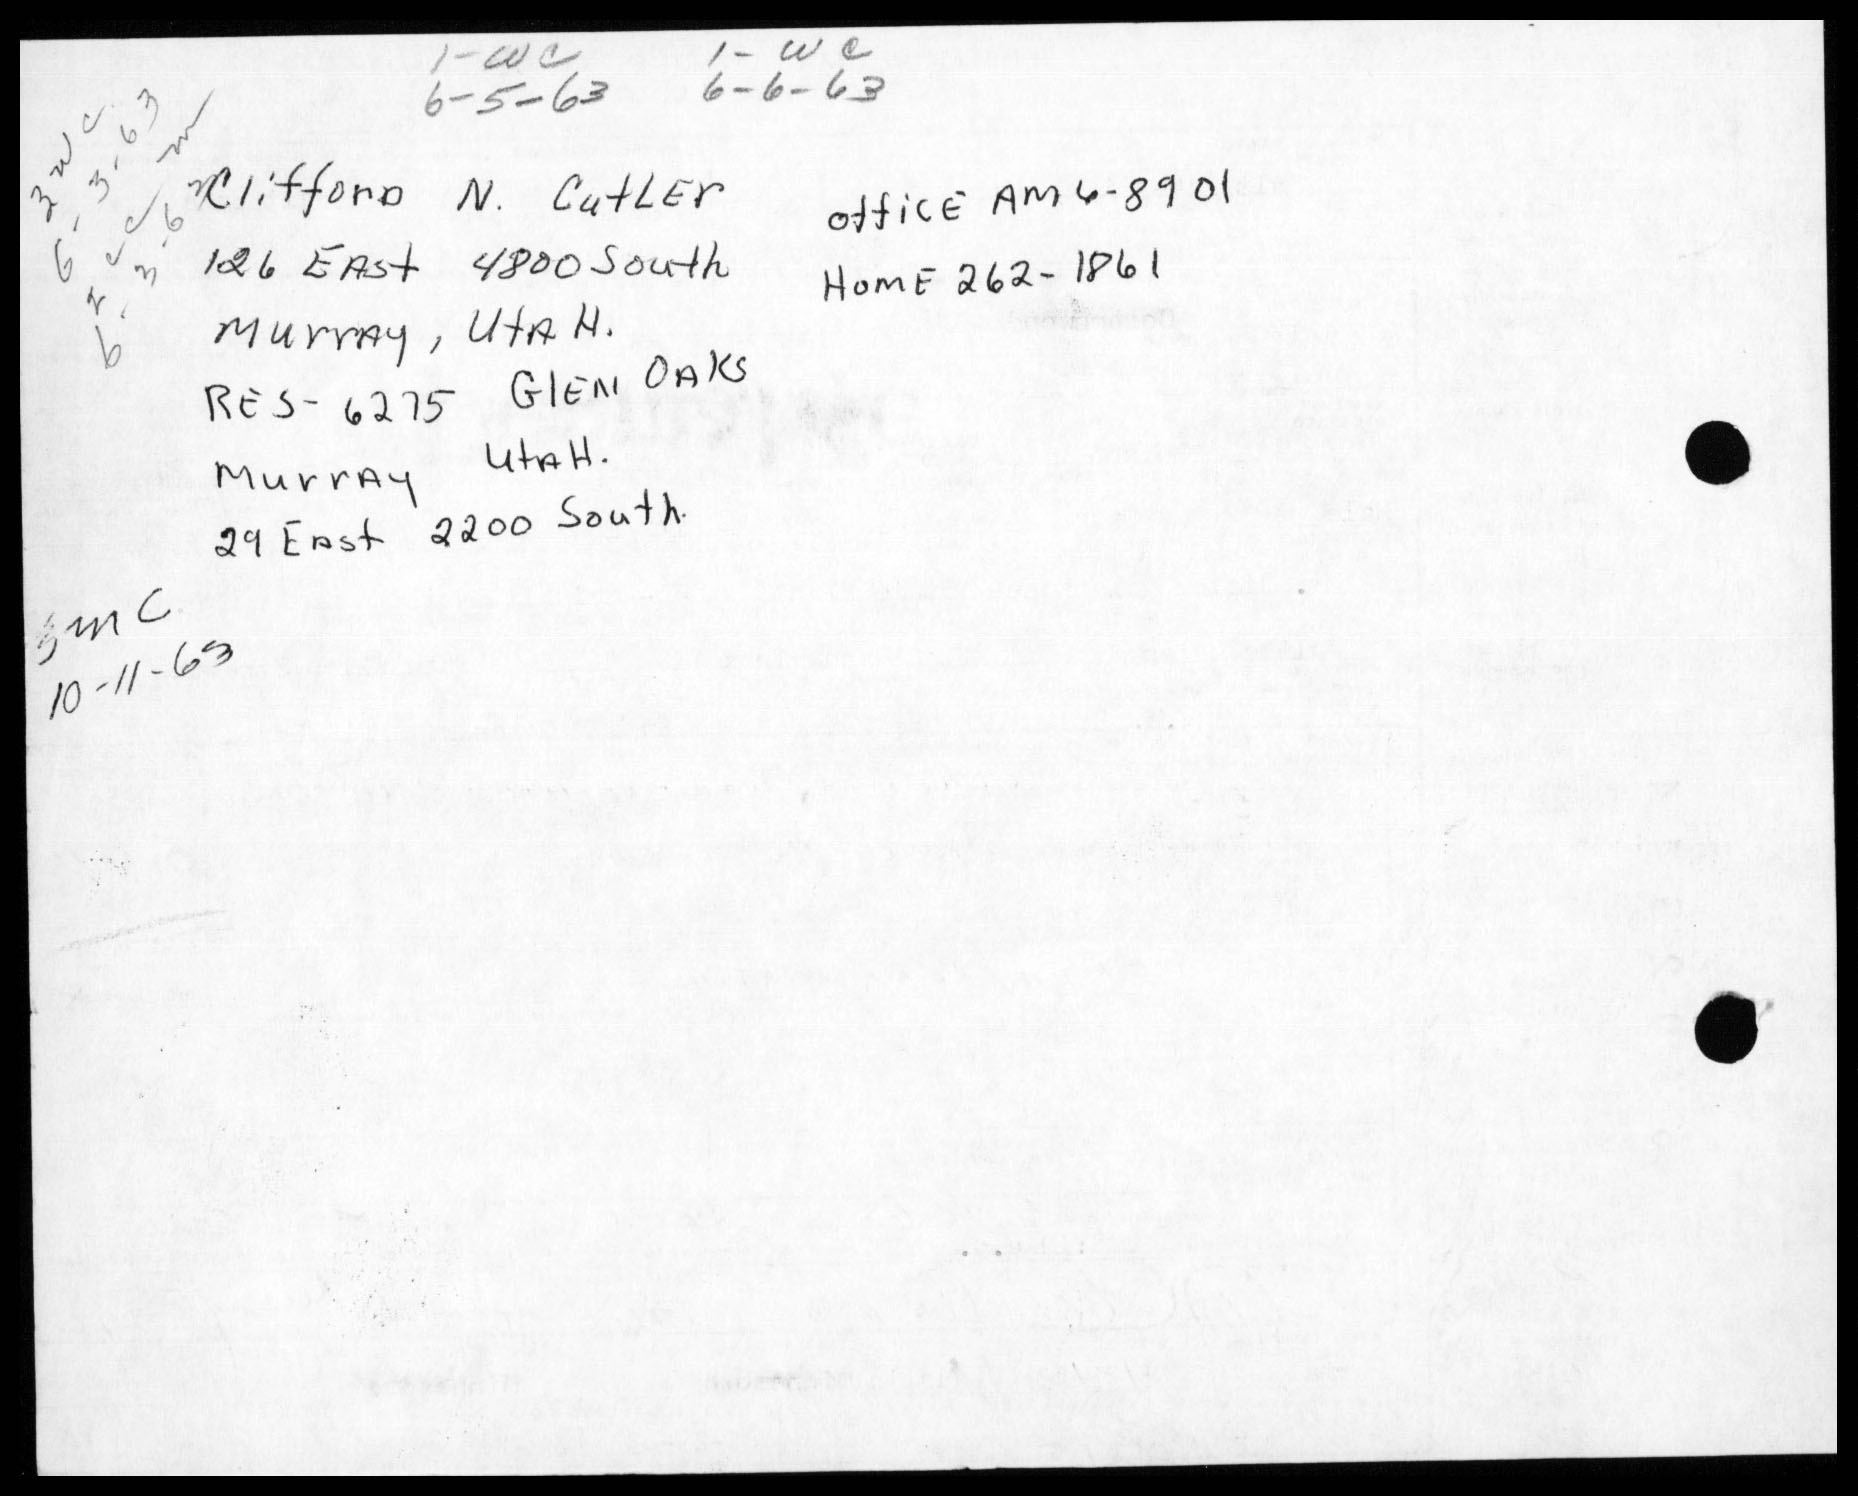 1-WC 1-WC
6-5-63 6-6-63
3 W C
6-3-63
6-3-63
Clifford N. CutLEr office AM 6-8901
126 EAst 4800 South HomE 262-1861
Murray, UtAH.
RES- 6275 GlEN OAKS
Murray UtAH.
29 East 2200 South.
3mC
10-11-63